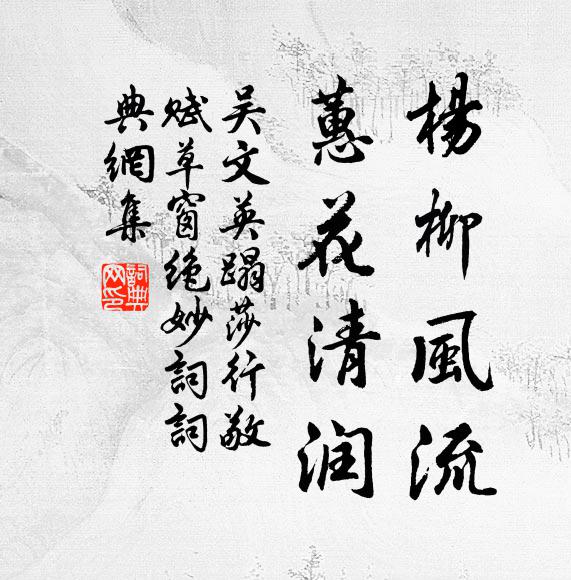 楊柳風流
蕙花清润
吴文英蹋莎行敬
赋草窗绝妙詞詞
典網集
詞典网印